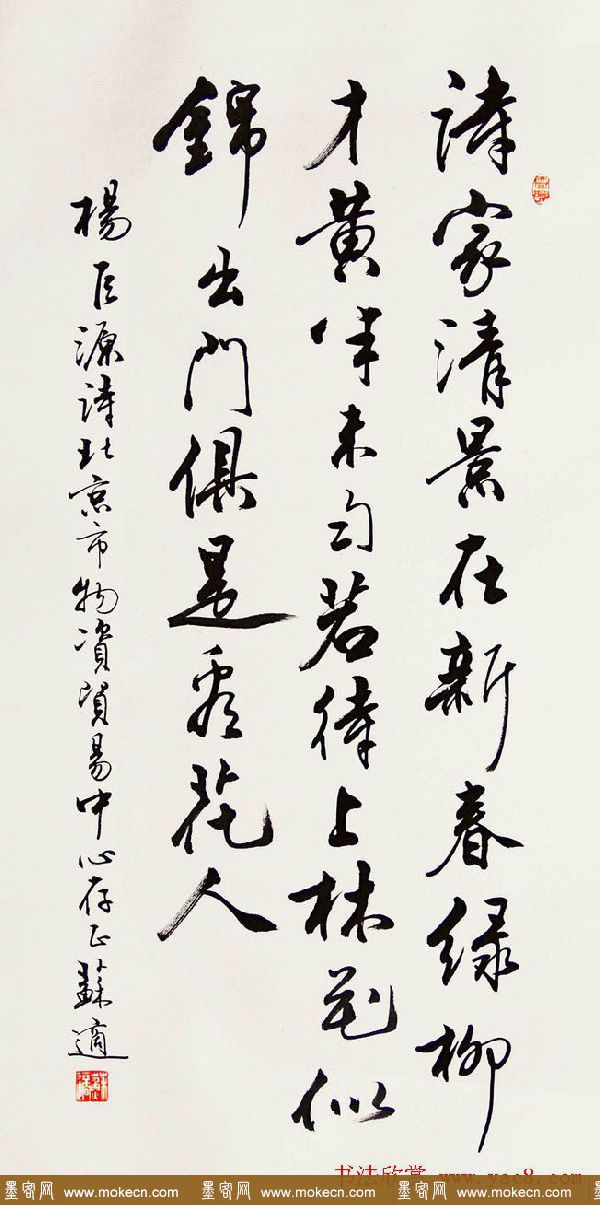 詩家清景在新春綠柳
才黃半未勻若待上林花似
錦出門俱是看花人
楊巨源詩北京市物資貿易中心存正蘇適
书法欣赏 www.yac8.com
墨客网 www.mokecn.com 墨客网 www.mokecn.com 墨客网 www.mokecn.com